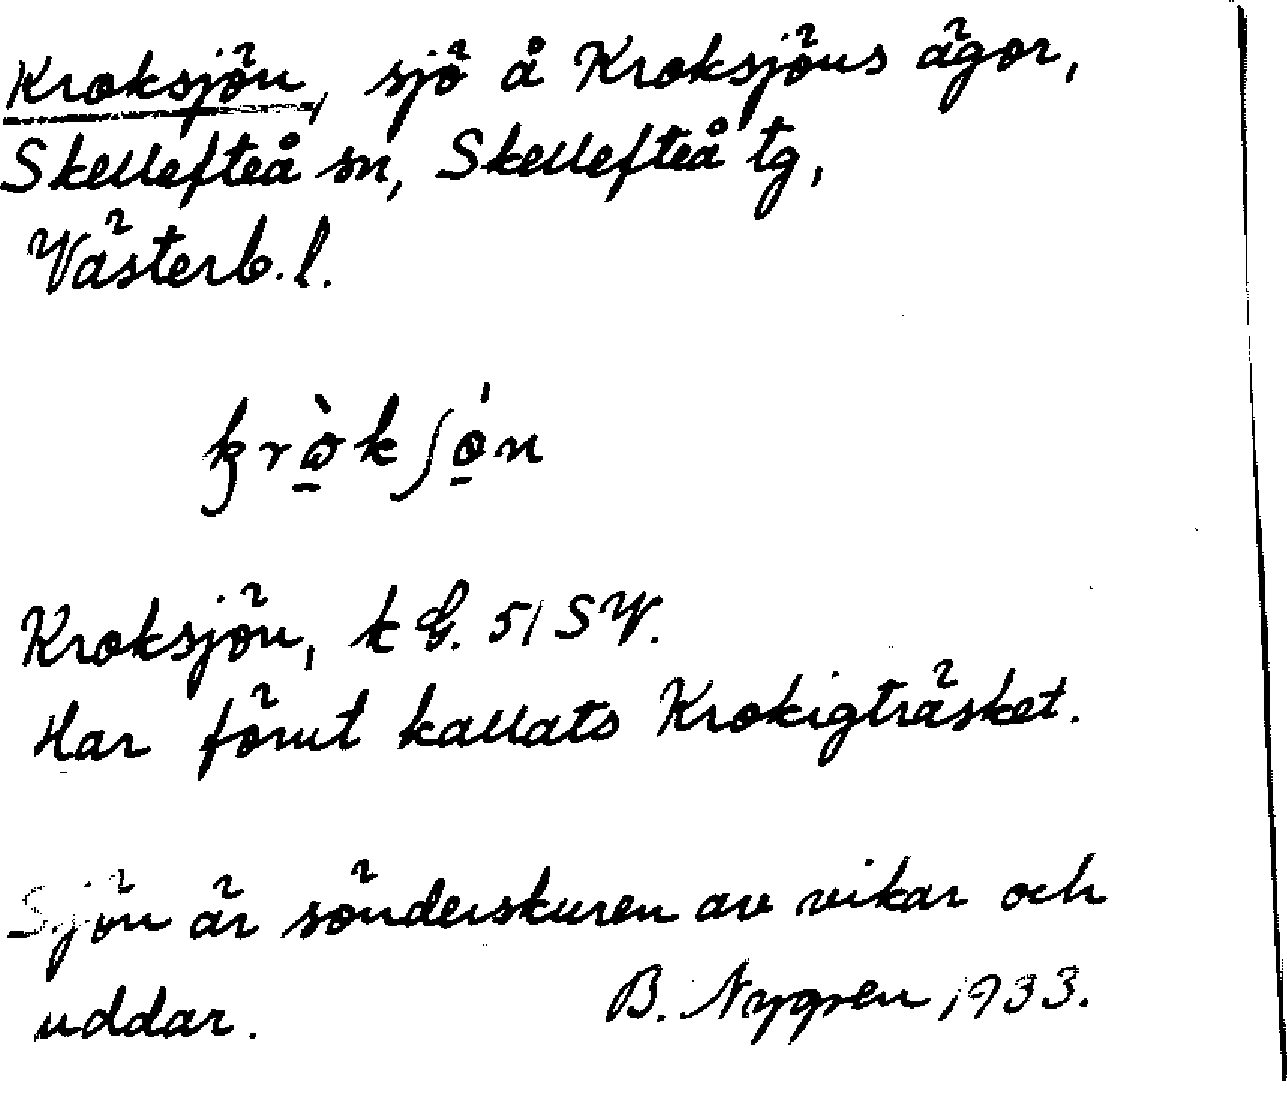 Kroksjön, sjö å Kroksjöns ägor,
Skellefteå sn, Skellefteå tg,
Västerb. l.
Kroksjön, k G. 51 SV.
Har förut kallats Krokigträsket.
Sjön är sönderskuren av vikar och
uddar. B. Nygren 1933.